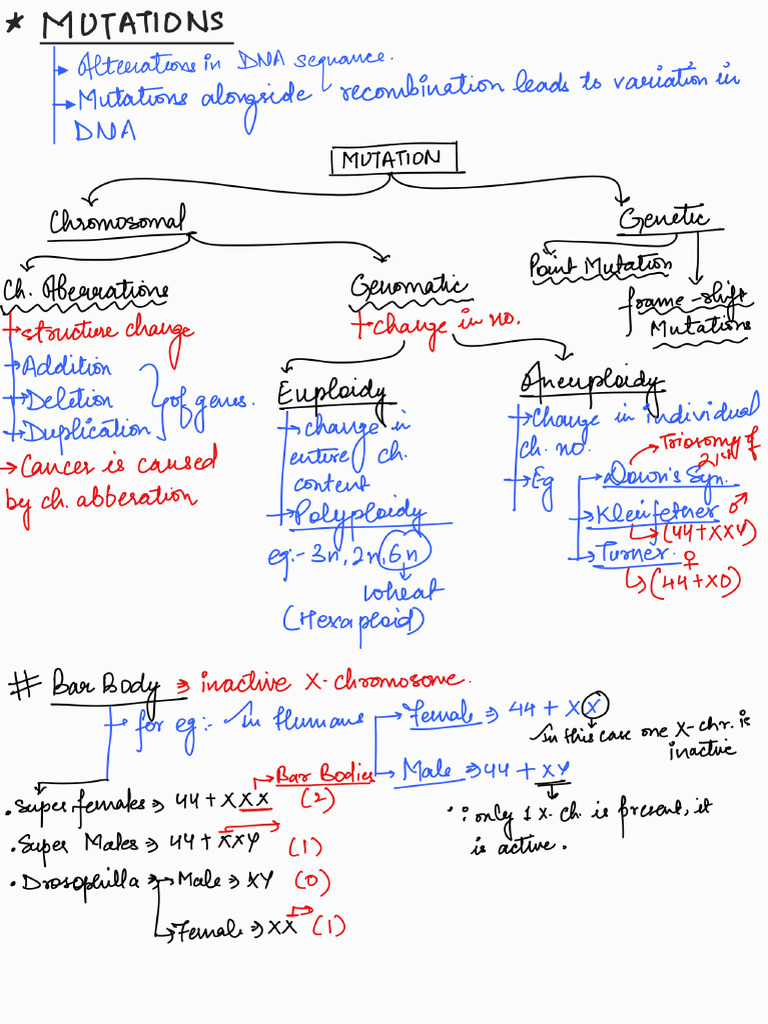 * MUTATIONS
→ Alterations in DNA sequance.
→ Mutations alongside recombination leads to variation in
DNA
MUTATION
Chromosomal
Genetic
Point Mutation
frame-shift
Mutations
Ch. Aberrations
→ structure change
→ Addition
→ Deletion
→ Duplication
} of genes.
→ Cancer is caused
by ch. abberation
Genomatic
→ change in no.
Euploidy
→ change in
entire ch.
content
→ Polyploidy
eg:- 3n, 2n, 6n
wheat
(Hexaploid)
Aneuploidy
→ Change in individual
ch. no.
→ Eg
→ Down's Syn.
→ Triosomy of
21st
→ Kleifetner ♂
↳ (44+XXY)
→ Turner. ♀
↳ (44+XO)
# Bar Body ⇒ inactive X-chromosome.
→ for eg:- in Humans
→ Female ⇒ 44 + XX
in this case one X-chr. is
inactive
→ Male ⇒ 44 + XY
∵ only 1 X. ch. is present, it
is active.
→ Bar Bodies
• Super females ⇒ 44 + XXX (2)
• Super Males ⇒ 44 + XXY (1)
• Drosophilla → Male ⇒ XY (0)
→ Female ⇒ XX (1)